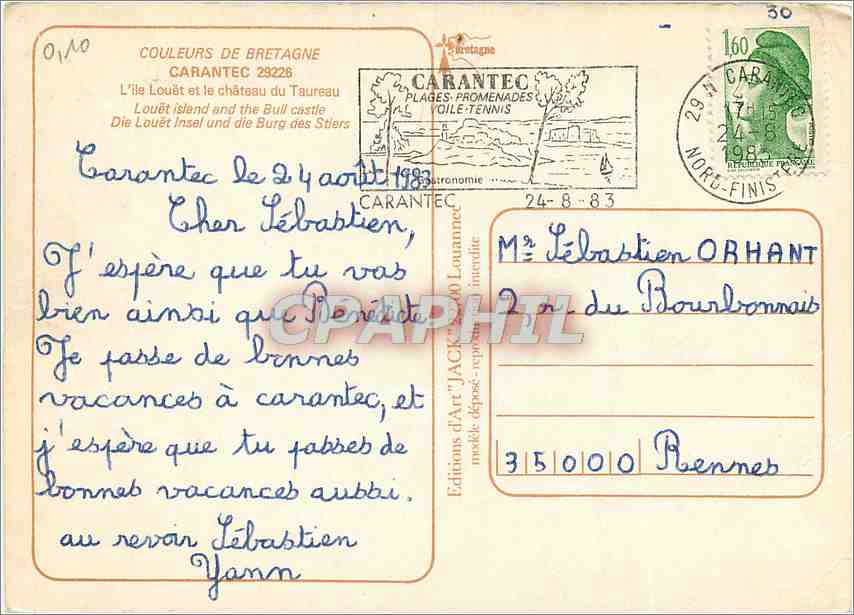 0,10
30
COULEURS DE BRETAGNE
CARANTEC 29226
L'île Louët et le château du Taureau
Louët island and the Bull castle
Die Louët Insel und die Burg des Stiers
Bretagne
CARANTEC
PLAGES-PROMENADES
VOILE-TENNIS
Gastronomie
CARANTEC 24-8-83
1,60
REPUBLIQUE FRANÇAISE
29 CARANTEC
17H15
24-8
1983
NORD-FINISTERE
Carantec le 24 août 1983
Cher Sébastien,
J'espère que tu vas
bien ainsi que Bénédicte.
Je passe de bonnes
vacances à carantec, et
j'espère que tu passes de
bonnes vacances aussi.
au revoir Sébastien
Yann
Editions d'Art "JACK" Louannec
modèle déposé - reproduction interdite
Mr Sébastien ORHANT
2, r. du Bourbonnais
35000 Rennes
CPARPHIL